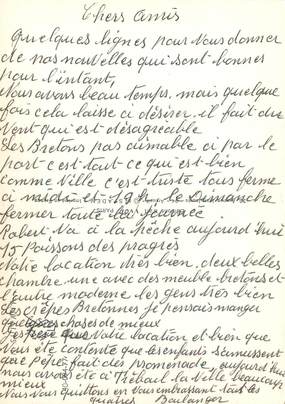 Chers Amis
Quelques lignes pour vous donner
de nos nouvelles qui sont bonnes
pour l'intant,
Nous avons beau temps, mais quelque
fois cela laisse a désirer il fait du
vent qui est désagréable
Les Bretons pas aimable a par le
port c'est tout ce qui est bien
comme ville c'est triste tous ferme
a 19h le Dimanche
fermer toute la journée
Robert va a la pêche aujourd'hui
15 Poissons des progrès
Notre location très bien, deux belles
chambre une avec des meuble bretons et
l'autre moderne les gens très bien
les crêpes Bretonnes je pensais manger
quelques choses de mieux
votre location et bien que
vous été contente que les enfants s'amussent
fait des promenade, aujourd'hui
nous avons été a la ville beaucoup
mieux
Nous vous quittons en vous embrassant tous les
quatres Boulanger